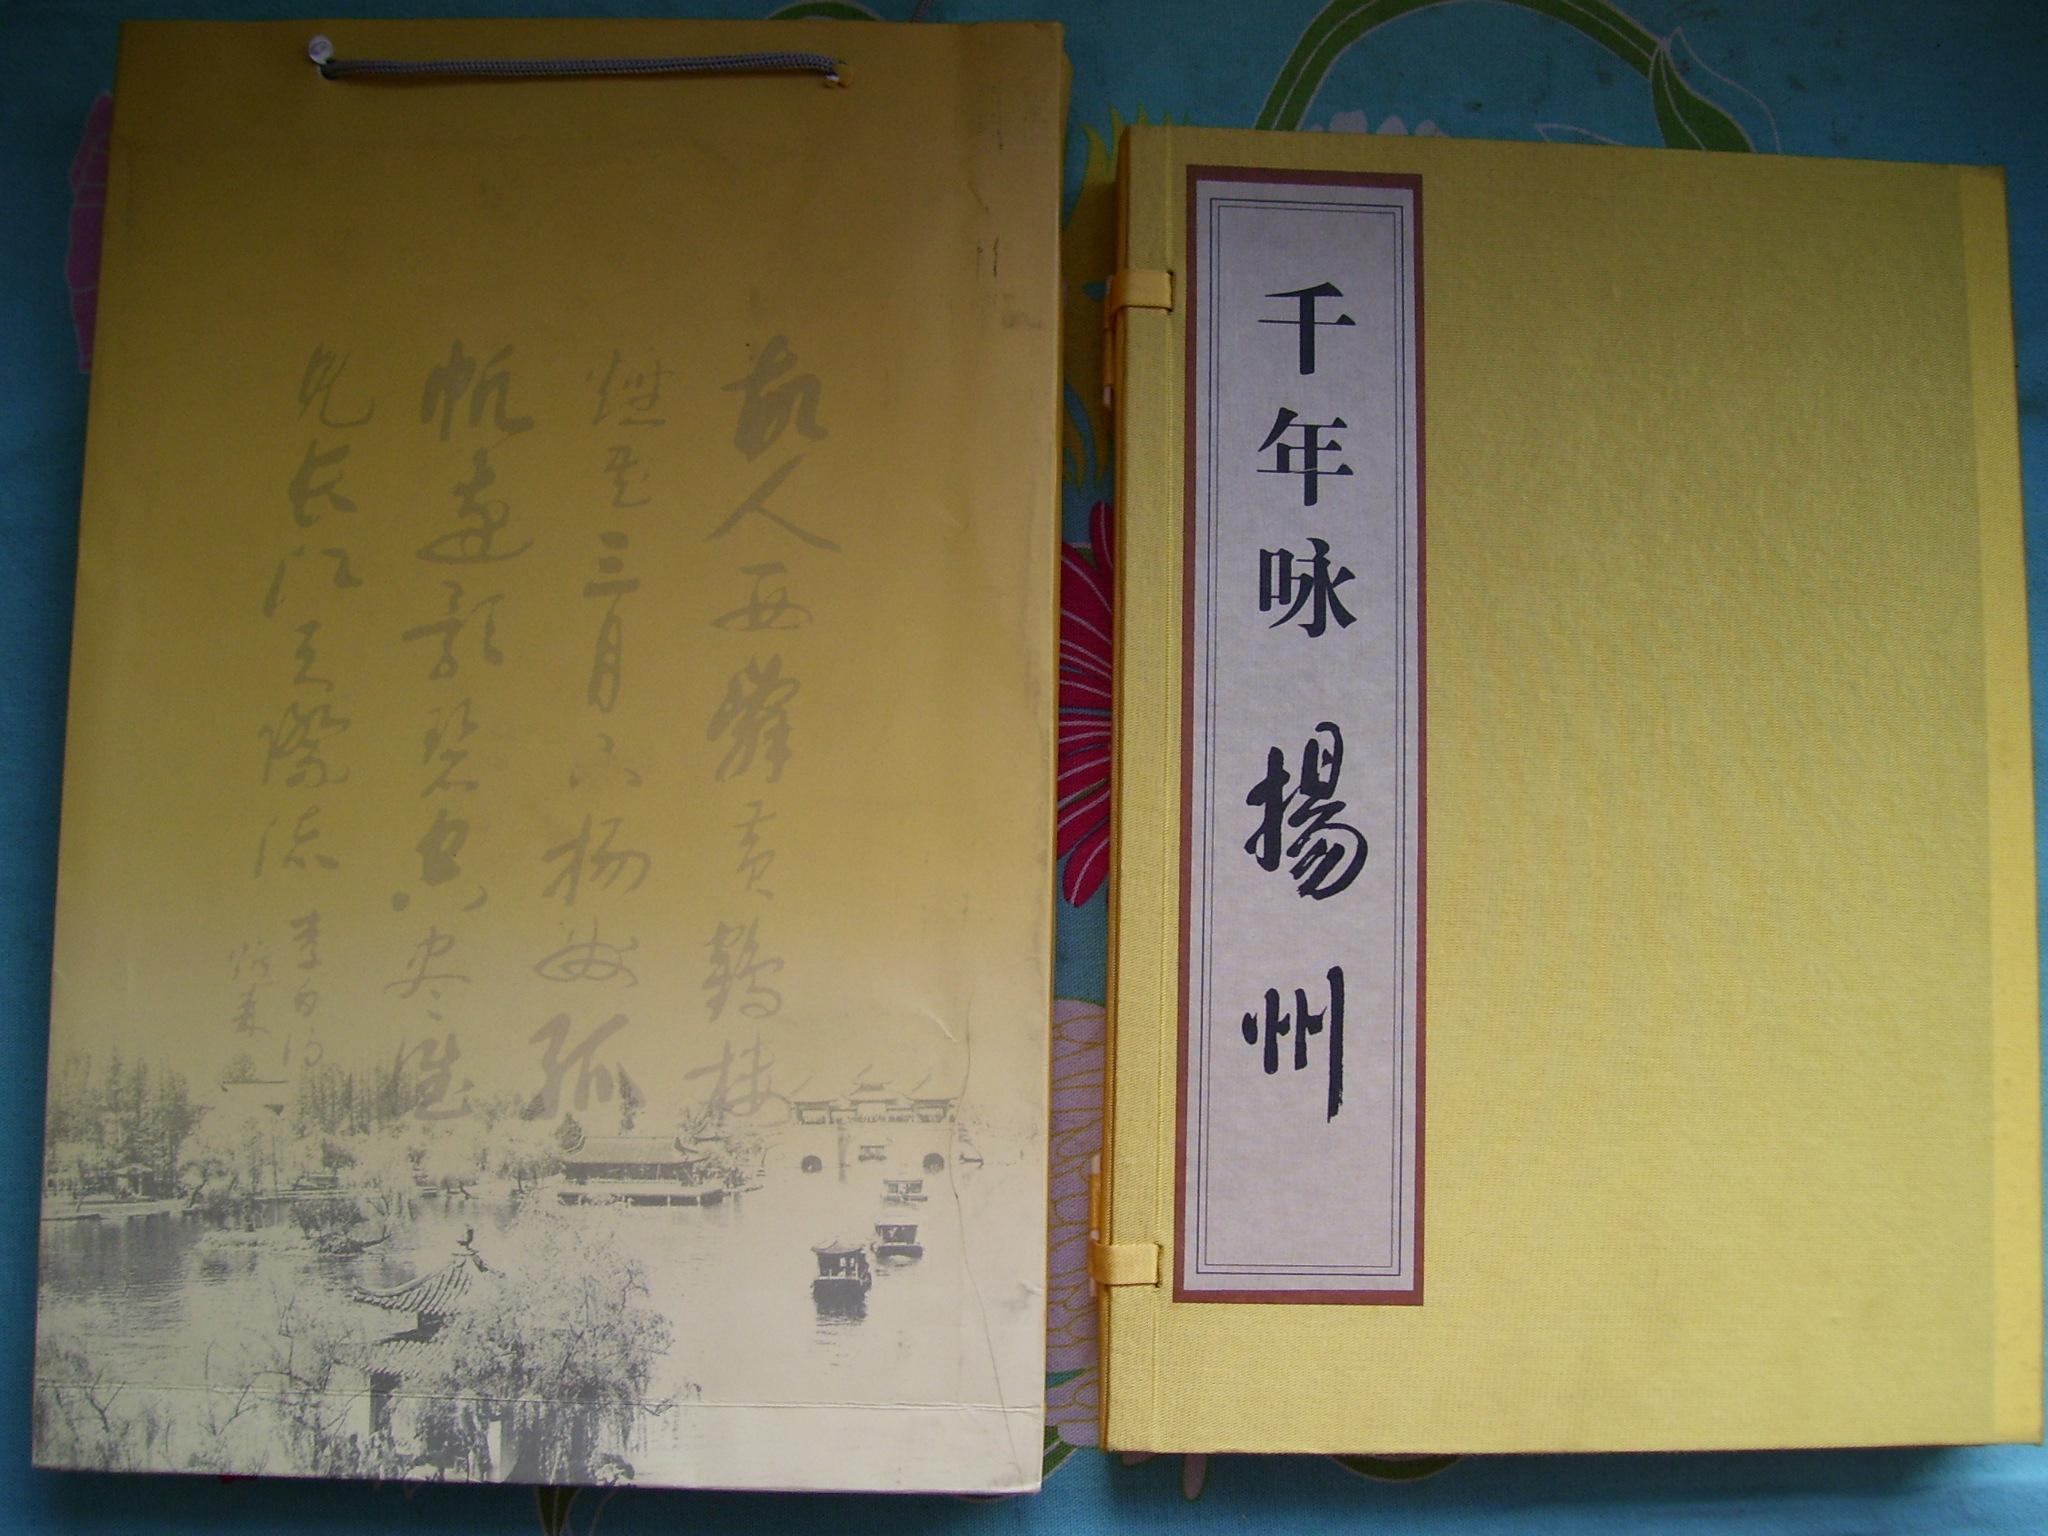 故人西辭黄鶴楼
煙花三月下揚州孤
帆遠影碧空尽唯
见长江天際流 李白诗
千年咏 揚州